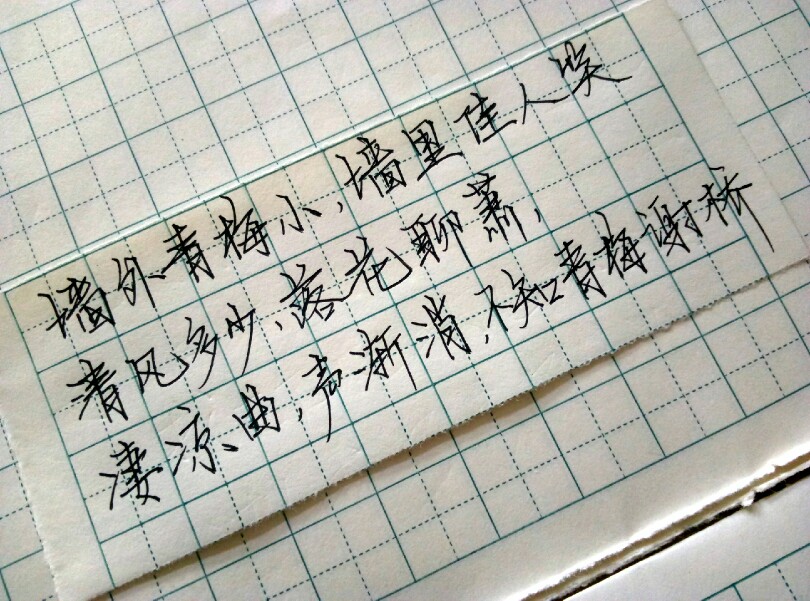 墙外青梅小，墙里佳人笑
清风多少、落花聊萧，
凄凉曲，声渐消，不知青梅谢桥